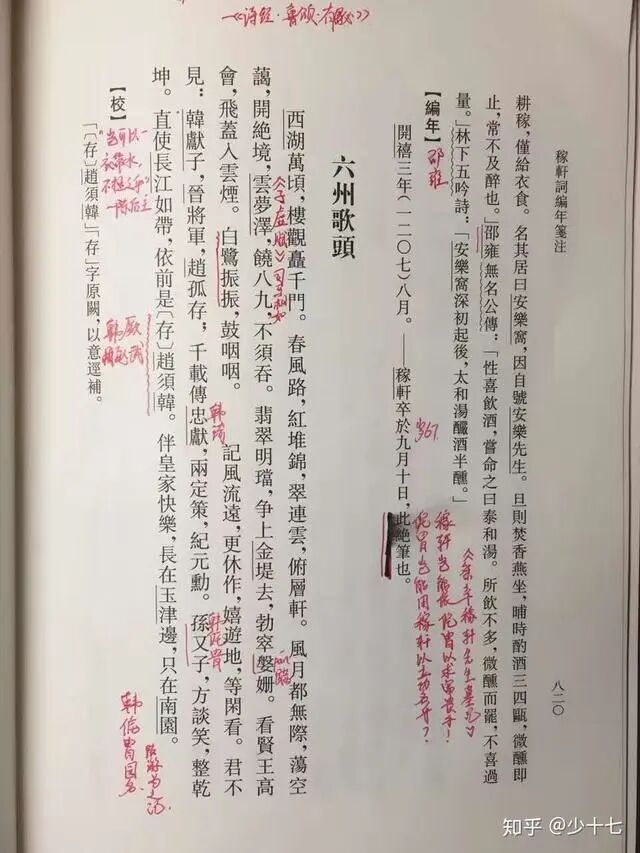 稼軒詞編年箋注
八二〇
耕稼，僅給衣食。名其居曰安樂窩，因自號安樂先生。旦則焚香燕坐，晡時酌酒三四甌，微醺即
止，常不及醉也。」邵雍無名公傳：「性喜飲酒，嘗命之曰泰和湯。所飲不多，微醺而罷，不喜過
量。」林下五吟詩：「安樂窩深初起後，太和湯釅酒半醺。」
邵雍
【編年】
開禧三年（一二〇七）八月。——稼軒卒於九月十日，此絕筆也。
六州歌頭
西湖萬頃，樓觀矗千門。春風路，紅堆錦，翠連雲，俯層軒。風月都無際，蕩空
藹，開絕境，雲夢澤，饒八九，不須吞。翡翠明璫，争上金堤去，勃窣媻姍。看賢王高
《子虛賦》司马相如
會，飛蓋入雲煙。白鷺振振，鼓咽咽。　記風流遠，更休作，嬉遊地，等閑看。君不
《诗经·鲁颂·有駜》
見：韓獻子，晉將軍，趙孤存；千載傳忠獻，兩定策，紀元勳。孫又子，方談笑，整乾
韩厥
韩琦
韩侂胄
坤。直使長江如帶，依前是〔存〕趙須韓。伴皇家快樂，長在玉津邊，只在南園。
韩侂胄园名
【校】
「〔存〕趙須韓」「存」字原闕，以意逕補。
知乎 @少十七